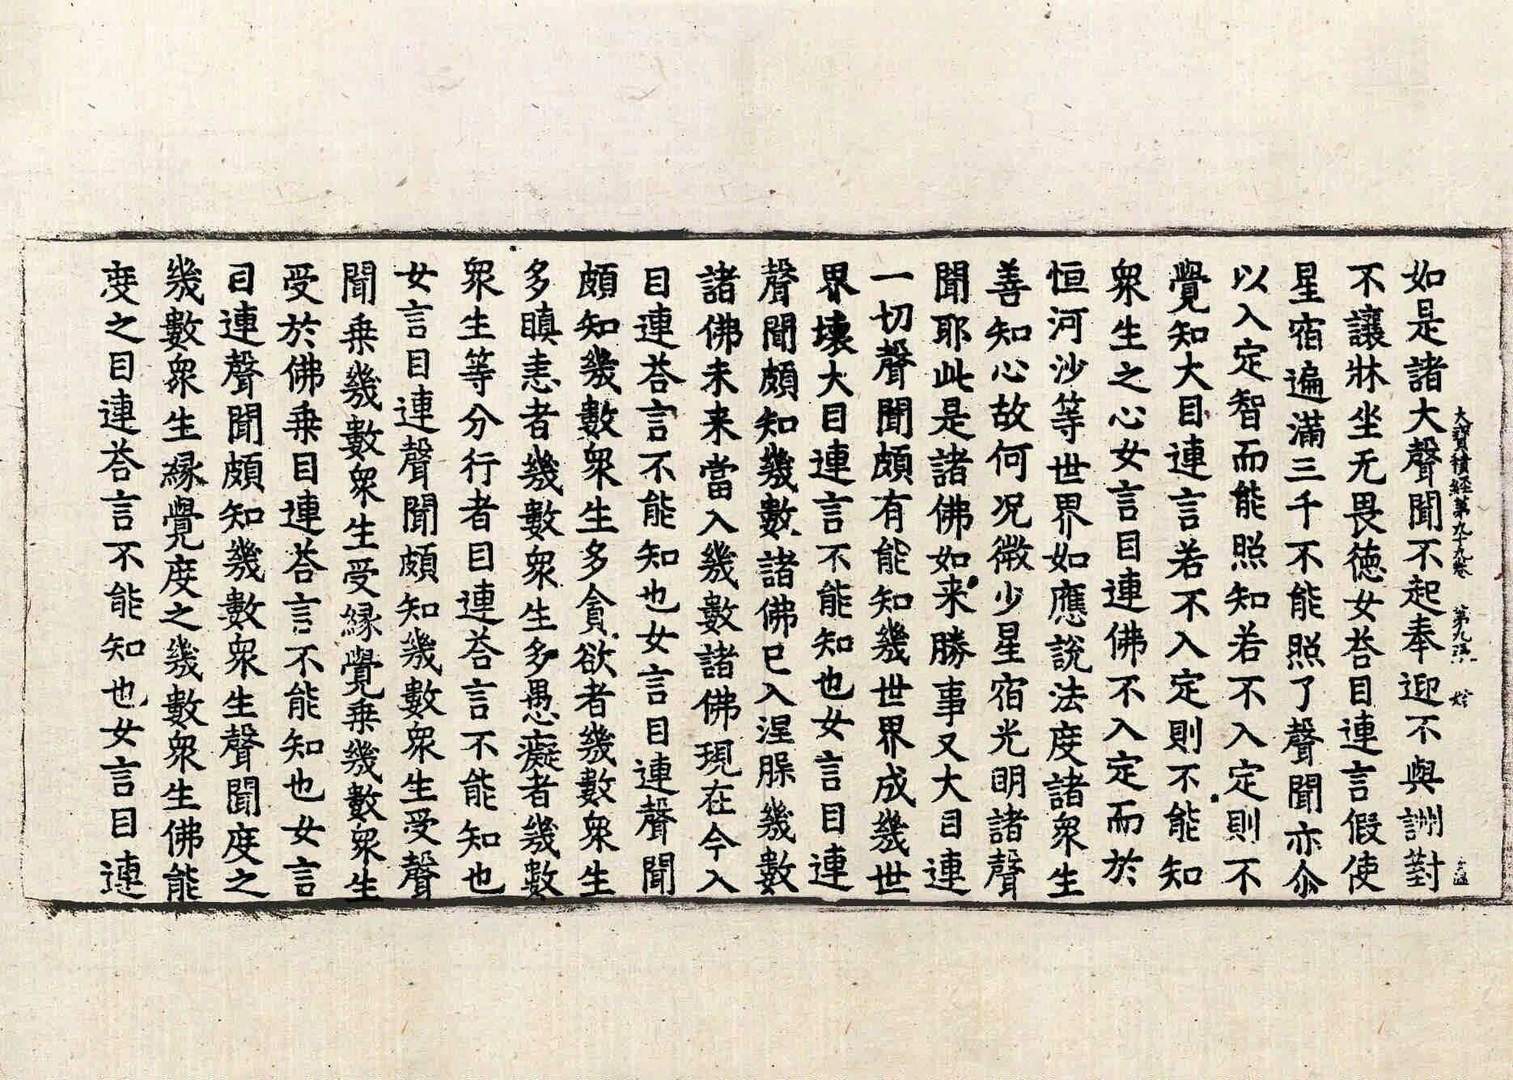 如是諸大聲聞不起奉迎不與詶對
大寶積經第九十九卷 第九張
不讓牀坐无畏德女荅目連言假使
星宿遍滿三千不能照了聲聞亦尒
以入定智而能照知若不入定則不
覺知大目連言若不入定則不能知
衆生之心女言目連佛不入定而於
恒河沙等世界如應說法度諸衆生
善知心故何况微少星宿光明諸聲
聞耶此是諸佛如来勝事又大目連
一切聲聞頗有能知幾世界成幾世
界壞大目連言不能知也女言目連
聲聞頗知幾數諸佛已入涅槃幾數
諸佛未来當入幾數諸佛現在今入
目連荅言不能知也女言目連聲聞
頗知幾數衆生多貪欲者幾數衆生
多瞋恚者幾數衆生多愚癡者幾數
衆生等分行者目連荅言不能知也
女言目連聲聞頗知幾數衆生受聲
聞乗幾數衆生受緣覺乗幾數衆生
受於佛乗目連荅言不能知也女言
目連聲聞頗知幾數衆生聲聞度之
幾數衆生緣覺度之幾數衆生佛能
度之目連荅言不能知也女言目連